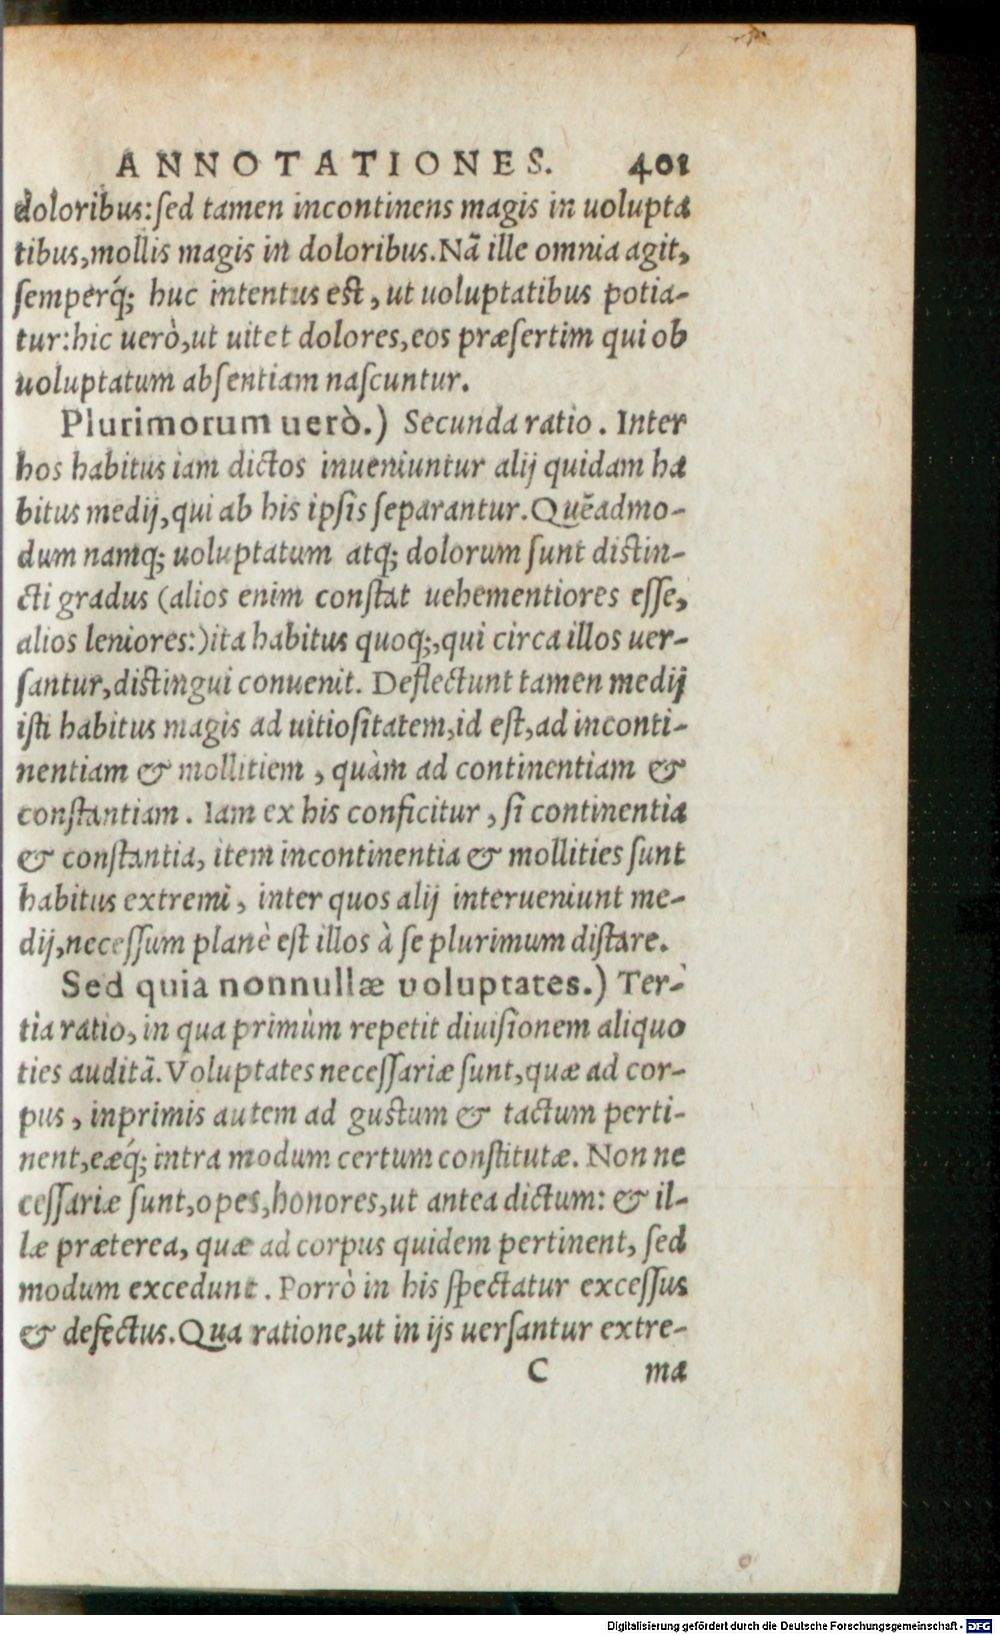 ANNOTATIONES. 401
doloribus: sed tamen incontinens magis in uolupta
tibus, mollis magis in doloribus. Nã ille omnia agit,
semperq́; huc intentus est, ut uoluptatibus potia-
tur: hic uerò, ut uitet dolores, eos præsertim qui ob
uoluptatum absentiam nascuntur.
Plurimorum uerò.) Secunda ratio. Inter
hos habitus iam dictos inueniuntur alij quidam ha
bitus medij, qui ab his ipsis separantur. Quẽadmo-
dum namq; uoluptatum atq; dolorum sunt distin-
cti gradus (alios enim constat uehementiores esse,
alios leniores:) ita habitus quoq;, qui circa illos uer-
santur, distingui conuenit. Deflectunt tamen medij
isti habitus magis ad uitiositatem, id est, ad inconti-
nentiam & mollitiem, quàm ad continentiam &
constantiam. Iam ex his conficitur, si continentia
& constantia, item incontinentia & mollities sunt
habitus extremi, inter quos alij interueniunt me-
dij, necessum planè est illos à se plurimum distare.
Sed quia nonnullæ uoluptates.) Ter-
tia ratio, in qua primùm repetit diuisionem aliquo
ties auditã. Voluptates necessariæ sunt, quæ ad cor-
pus, inprimis autem ad gustum & tactum perti-
nent, eæq́; intra modum certum constitutæ. Non ne
cessariæ sunt, opes, honores, ut antea dictum: & il-
læ præterea, quæ ad corpus quidem pertinent, sed
modum excedunt. Porrò in his spectatur excessus
& defectus. Qua ratione, ut in ijs uersantur extre-
C ma
Digitalisierung gefördert durch die Deutsche Forschungsgemeinschaft - DFG